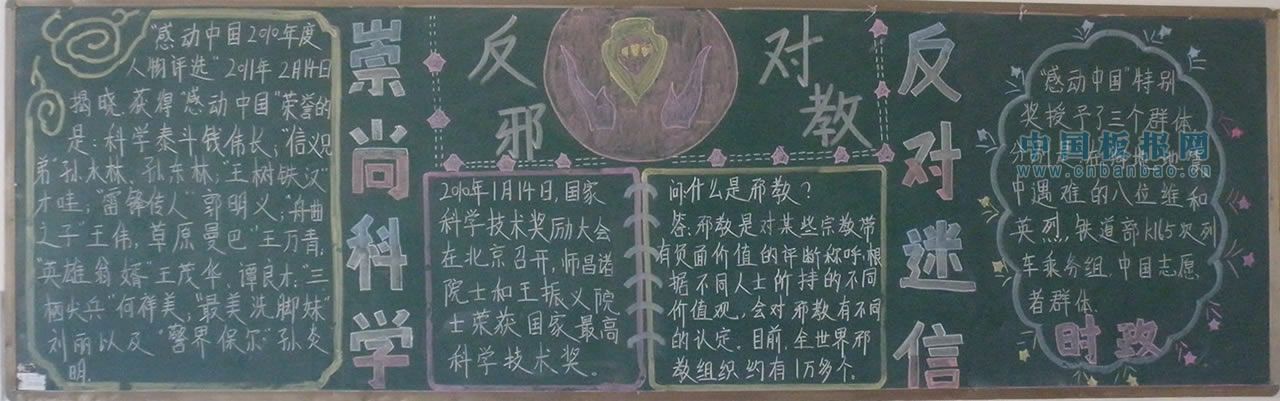 "感动中国2010年度
人物评选"2011年2月14日
揭晓.获得"感动中国"荣誉的
是:科学泰斗钱伟长;"信义兄
弟"孙水林、孙东林;"王树铁汉"
才哇;"雷锋传人"郭明义;"舟曲
之子"王伟,草原曼巴"王万青,
"英雄翁婿"王茂华、谭良才;"三
栖尖兵"何祥美;"最美洗脚妹"
刘丽以及"警界保尔"孙炎
明.
崇尚科学
反邪
对教
2010年1月14日,国家
科学技术奖励大会
在北京召开,师昌绪
院士和王振义院
士荣获国家最高
科学技术奖。
问:什么是邪教?
答:邪教是对某些宗教带
有负面价值的评断称呼,根
据不同人士所持的不同
价值观,会对邪教有不同
的认定.目前,全世界邪
教组织约有1万多个。
反对迷信
"感动中国"特别
奖授予了三个群体,
分别是
中遇难的八位维和
英烈,铁道部k165次列
车乘务组.中国志愿
者群体.
时政
中国板报网
www.cnbanbao.cn